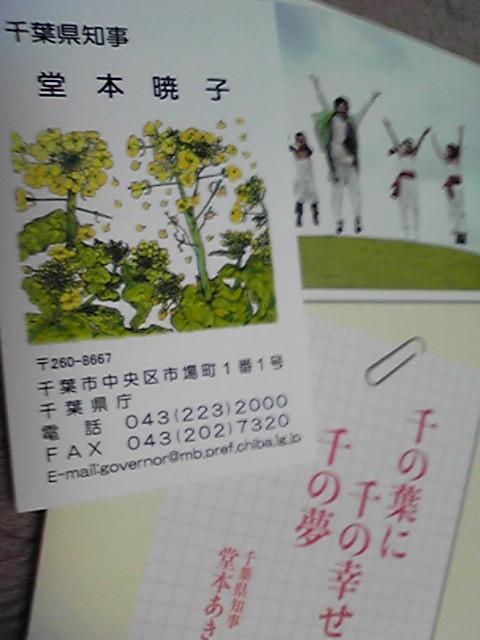 千葉県知事
堂本暁子
〒260-8667
千葉市中央区市場町1番1号
千葉県庁
電話 043(223)2000
FAX 043(202)7320
E-mail:governor@mb.pref.chiba.lg.jp
千の葉に
千の幸せ
千の夢
千葉県知事
堂本あき